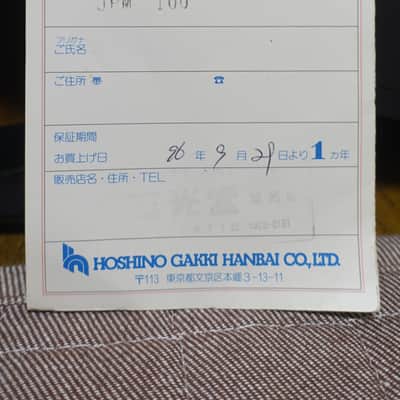 JPM 100
フリガナ
ご氏名
ご住所 〠 ☎
保証期間
お買上げ日 96 年 9 月 29 日より 1 ヵ年
販売店名・住所・TEL
HOSHINO GAKKI HANBAI CO., LTD.
〒113 東京都文京区本郷3-13-11